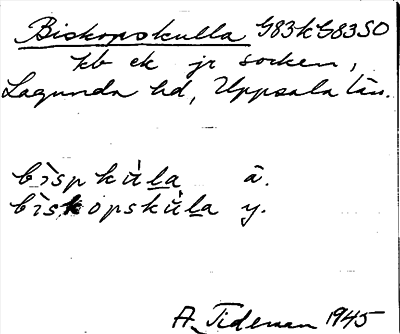 Biskopskulla G83k G83SO
kb ek jr socken,
Lagunda hd, Uppsala län.
bìspkùla ä.
bìskopskùla y.
A. Tideman 1945